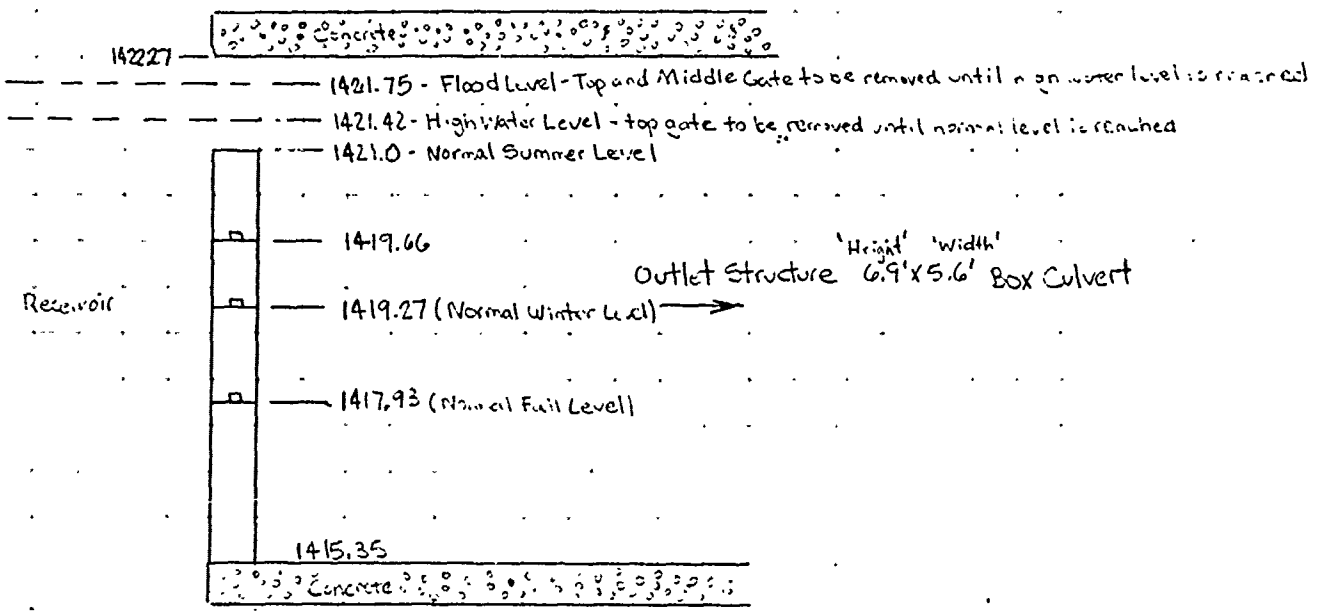 Concrete
142227
1421.75 - Flood Level - Top and Middle Gate to be removed until water level is
1421.42 - High Water Level - top gate to be removed until normal level is reached
1421.0 - Normal Summer Level
1419.66
'Height' 'Width'
Outlet Structure 6.9'x5.6' Box Culvert
Reservoir
1419.27 (Normal Winter Level)
1417.93 (Normal Fall Level)
1415.35
Concrete